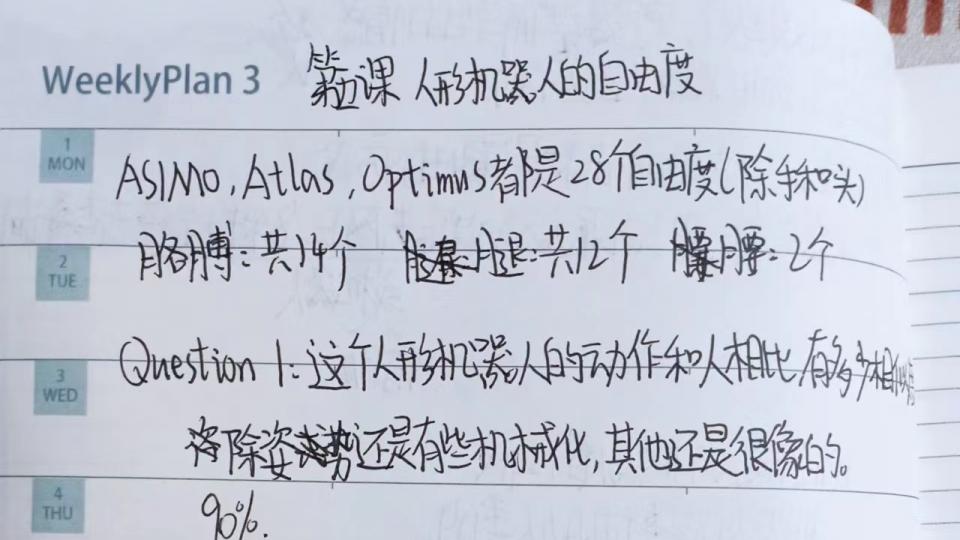 WeeklyPlan 3 第五课 人形机器人的自由度
1
MON
ASIMO, Atlas, Optimus都是28个自由度(除手和头)
2
TUE
胳膊:共14个 腿:共12个 腰:2个
3
WED
Question 1:这个人形机器人的动作和人相比有多少相似
除姿势还是有些机械化,其他还是很像的。
4
THU
90%.